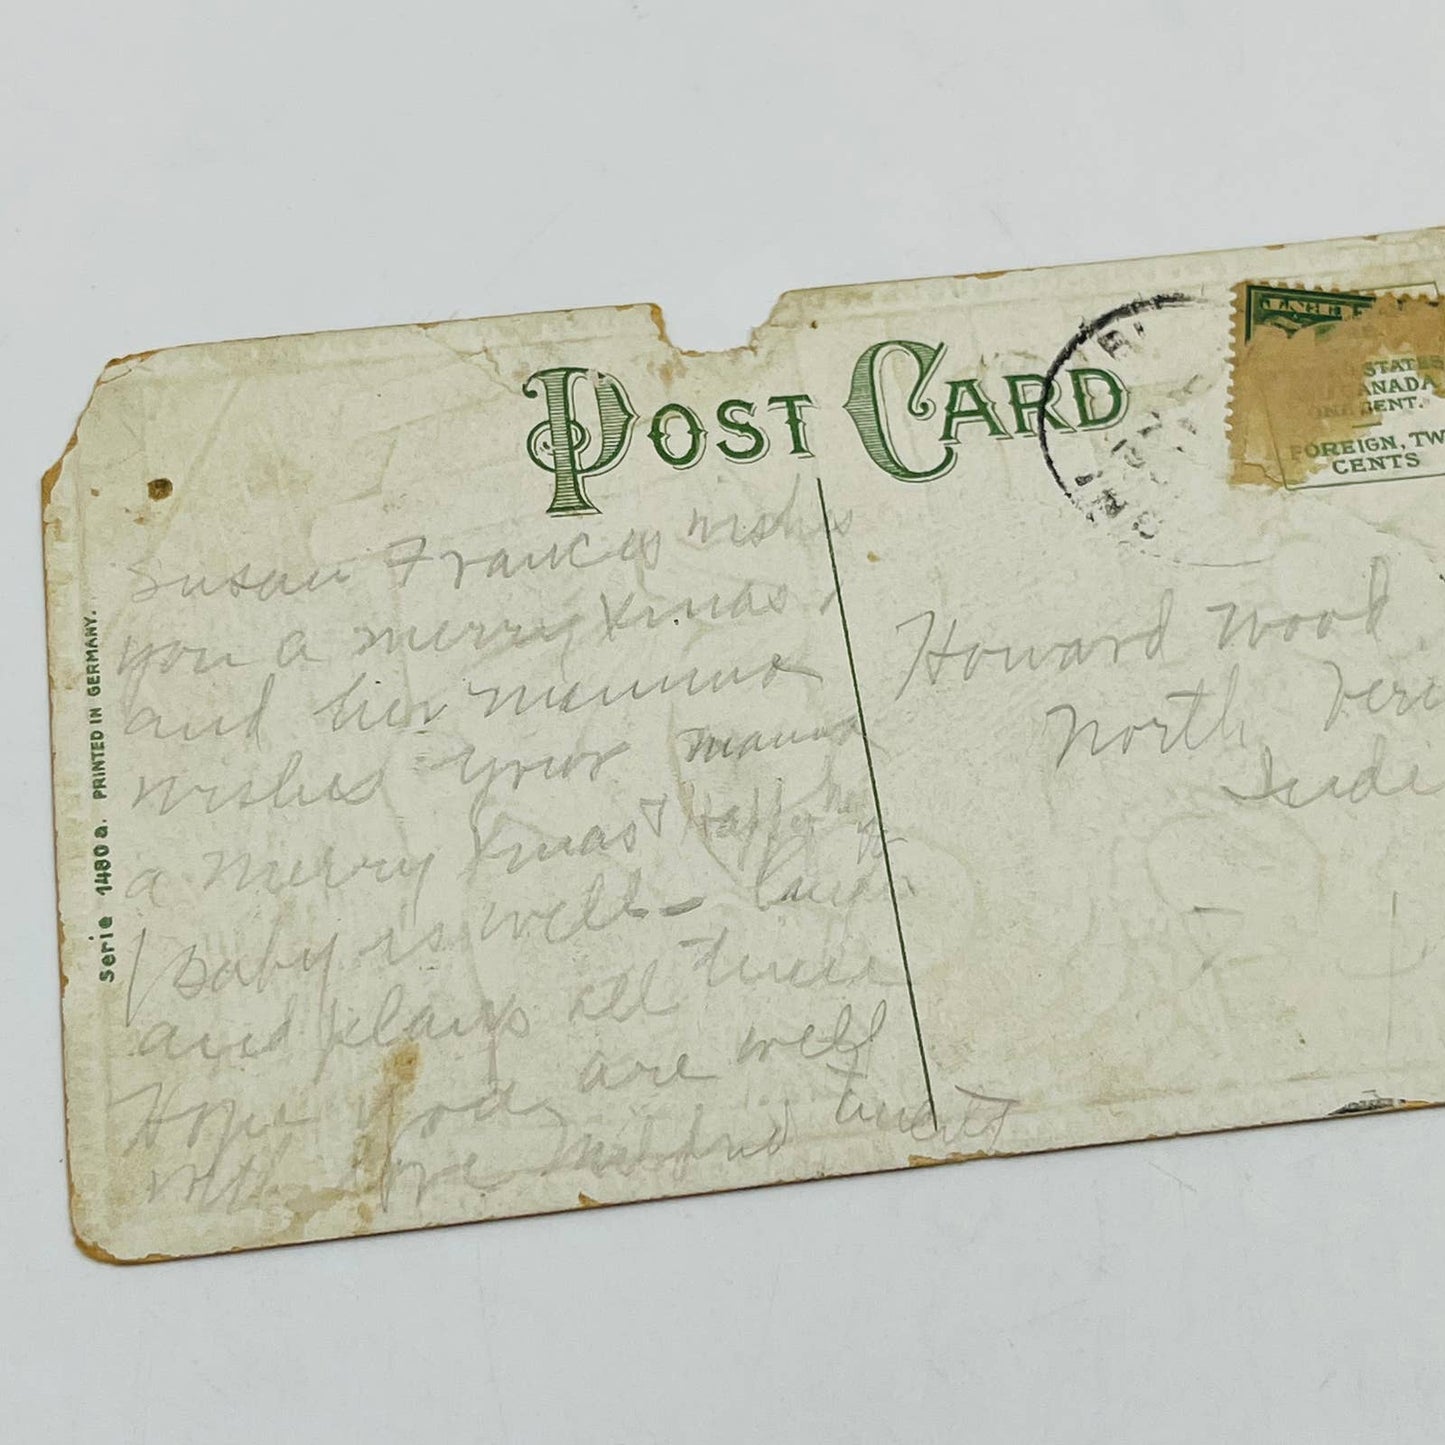 POST CARD
STATES
ANADA
ONE CENT.
FOREIGN, TW
CENTS
Serie 1480 a. PRINTED IN GERMANY.
Susan Frances wishes
you a merry Xmas,
and her mamma
wishes your mama
a merry Xmas & Happy
Baby is well - laughs
and plays all time
Hope you are well
with love Mildred
Howard Wood
North Ver
Indi